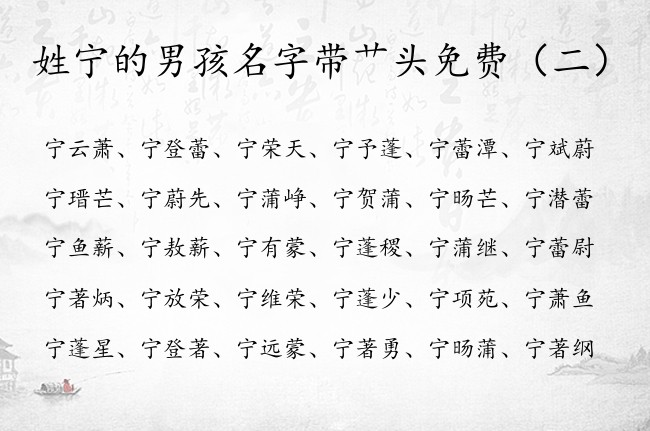 姓宁的男孩名字带艹头免费（二）
宁云萧、宁登蕾、宁荣天、宁予蓬、宁蕾潭、宁斌蔚
宁瑨芒、宁蔚先、宁蒲峥、宁贺蒲、宁旸芒、宁潜蕾
宁鱼薪、宁敖薪、宁有蒙、宁蓬稷、宁蒲继、宁蕾尉
宁著炳、宁放荣、宁维荣、宁蓬少、宁项苑、宁萧鱼
宁蓬星、宁登著、宁远蒙、宁著勇、宁旸蒲、宁著纲